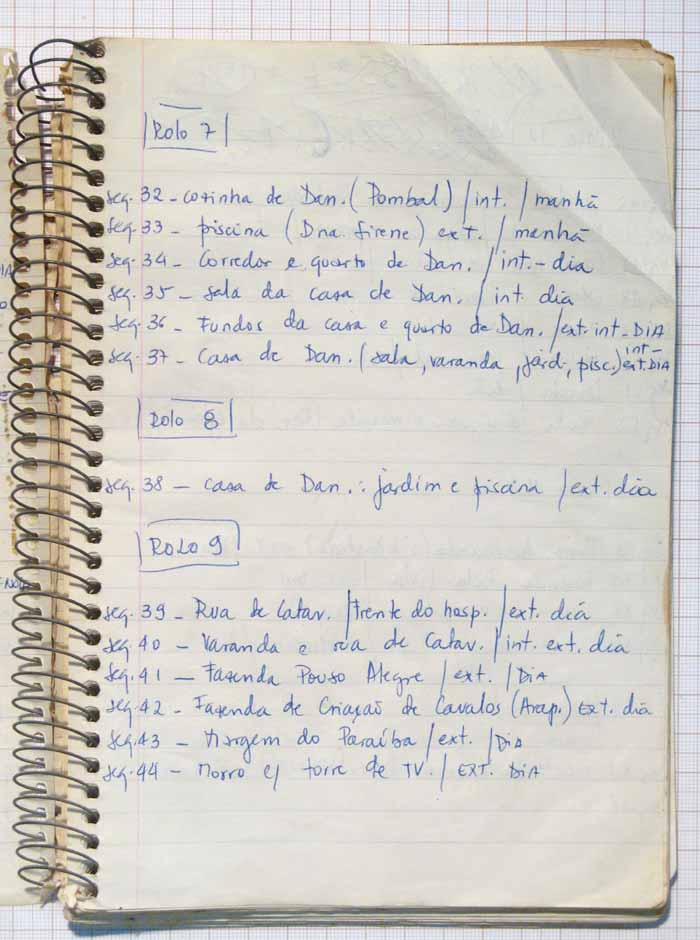 Rolo 7
seq. 32 - cozinha de Dan. (Pombal) / int. / manhã
seq. 33 - piscina (Dna. Sirene) ext. / manhã
seq. 34 - Corredor e quarto de Dan. / int. - dia
seq. 35 - sala da casa de Dan. / int. dia
seq. 36 - Fundos da casa e quarto de Dan. / ext. int - DIA
seq. 37 - Casa de Dan. (sala, varanda, jard., pisc.) int - ext. DIA
Rolo 8
seq. 38 - casa de Dan.: jardim e piscina / ext. dia
ROLO 9
seq. 39 - Rua de Catav. / frente do hosp. / ext. dia
seq. 40 - Varanda e rua de Catav. / int. ext. dia
seq. 41 - Fazenda Pouso Alegre / ext. / DIA
seq. 42 - Fazenda de Criação de Cavalos (Arap.) EXT. dia
seq. 43 - Margem do Paraíba / ext. / DIA
seq. 44 - Morro c/ torre de TV. / EXT. DIA